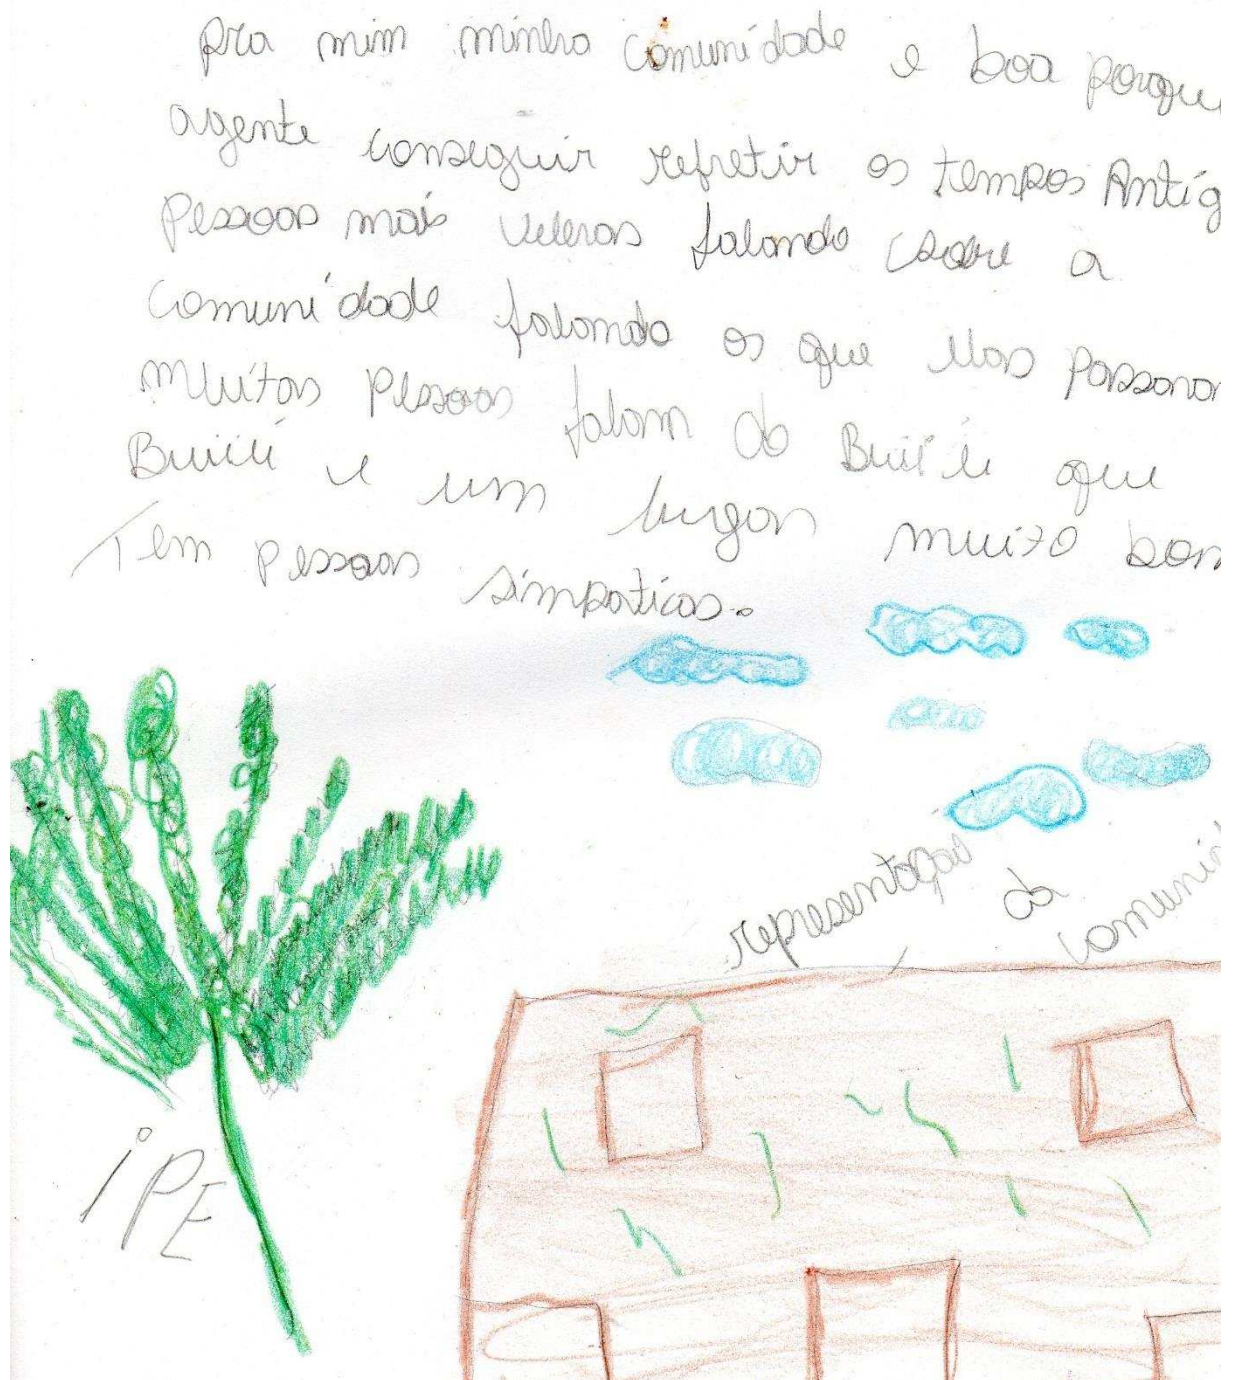 Pra mim minha comunidade e boa porque
agente conseguir refretir os tempos Antig
Pessoas mais velras falando sobre a
comunidade falando os que elas passara
muitas Pessoas falam do Buiéié que
Buiéié e um lugar muito bom
Tem pessoas simpaticas.
representação da comunid
iPE